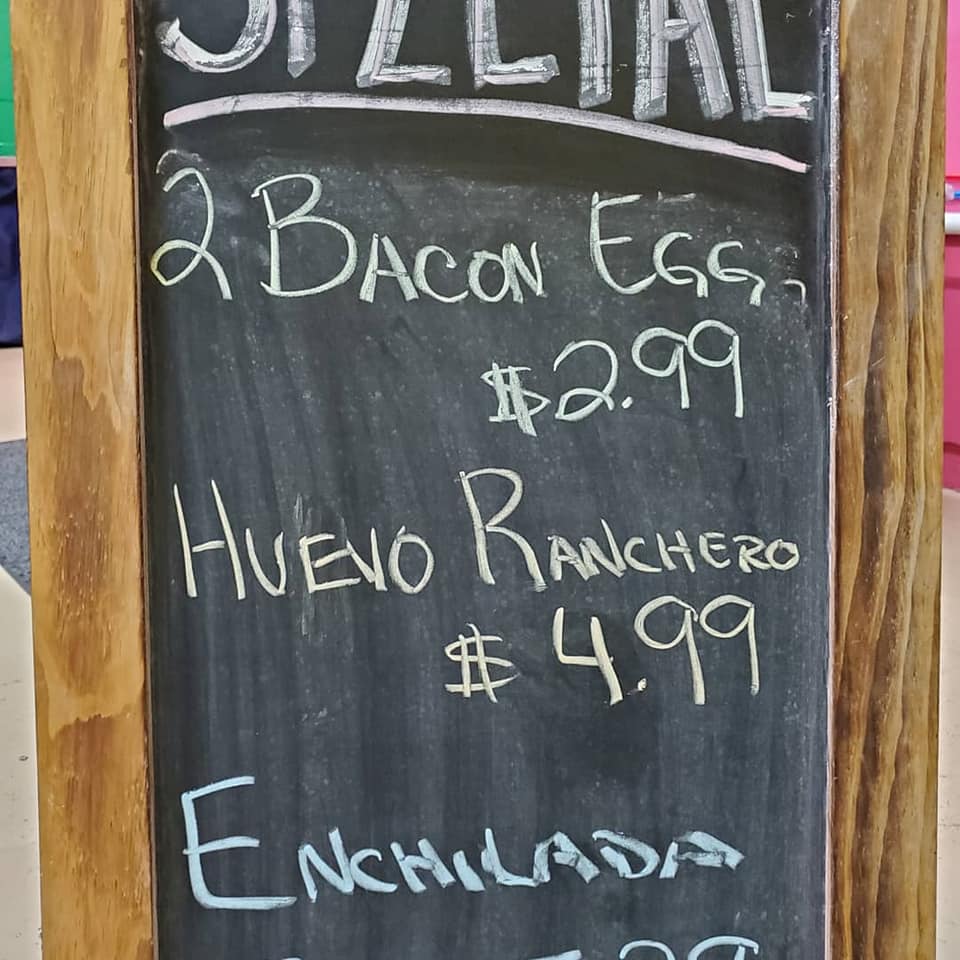 SPECIAL
2 BACON EGG
$2.99
HUEVO RANCHERO
$4.99
ENCHILADA